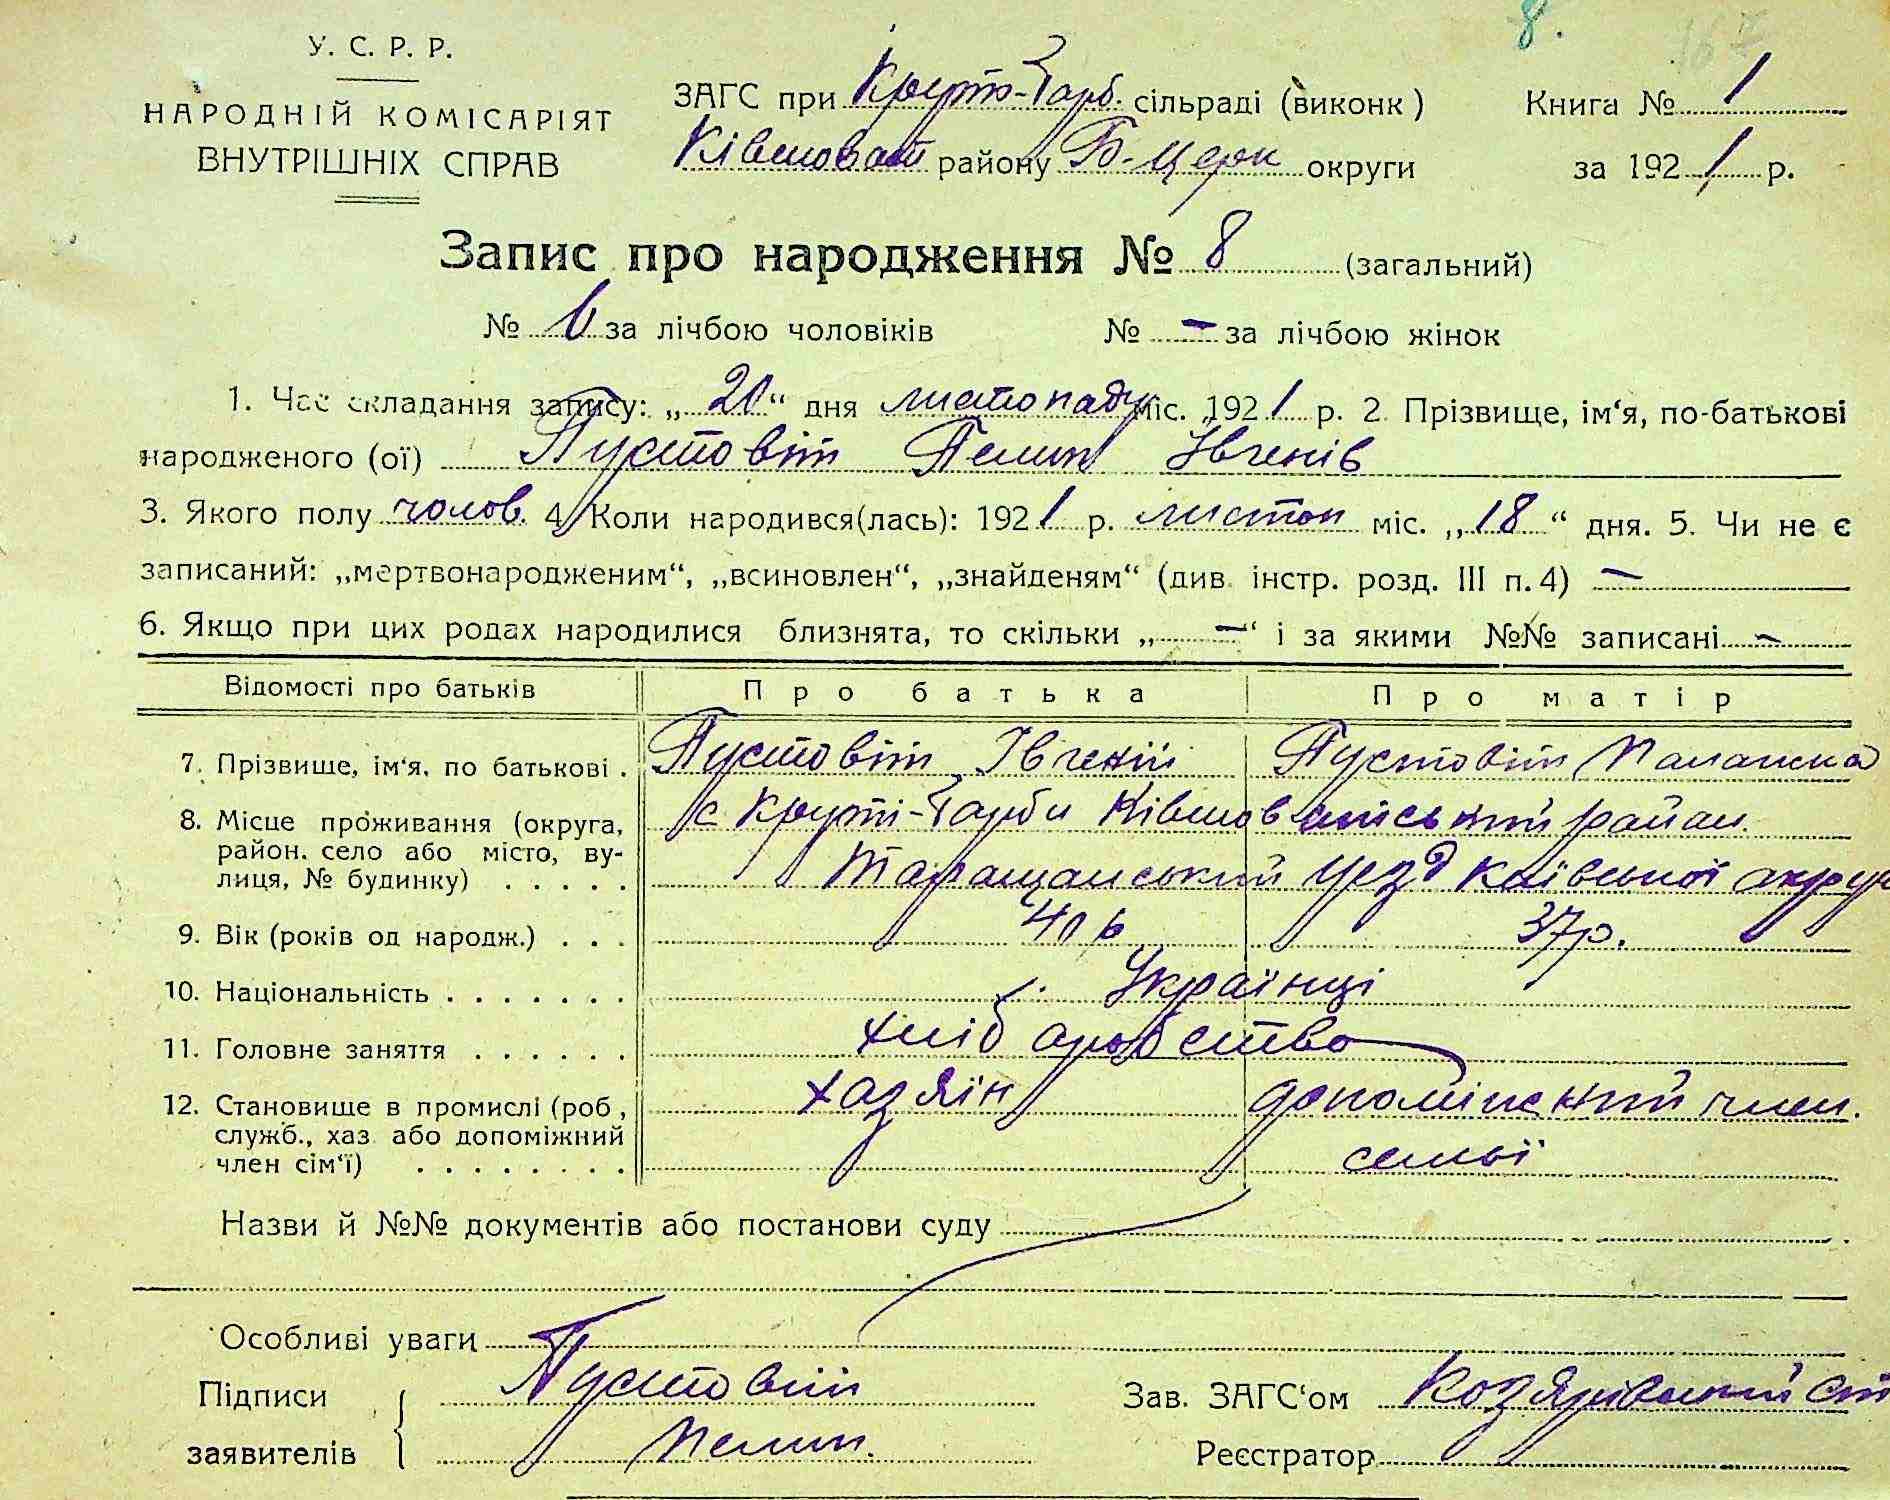 8. 167
У. С. Р. Р.
НАРОДНІЙ КОМІСАРІЯТ
ВНУТРІШНІХ СПРАВ
ЗАГС при Круто-Горб. сільраді (виконк) Книга № 1
Ківшоват району Б-церк округи за 1921 р.
Запис про народження № 8 (загальний)
№ 6 за лічбою чоловіків № – за лічбою жінок
1. Час складання запису: „20“ дня листопаду міс. 1921 р. 2 Прізвище, ім‘я, по-батькові
народженого (ої) Пустовіт Пелип Івченів
3. Якого полу чолов. 4 Коли народився(лась): 1921 р. листоп міс. „18“ дня. 5. Чи не є
записаний: „мертвонародженим“, „всиновлен“, „знайденям“ (див. інстр. розд. III п. 4) –
6. Якщо при цих родах народилися близнята, то скільки „–“ і за якими №№ записані –
Відомості про батьків Про батька Про матір
7. Прізвище, ім‘я, по батькові . Пустовіт Івчений Пустовіт Палажка
8. Місце проживання (округа,
район. село або місто, ву-
лиця, № будинку) . . . . .
с Круті-Горби Ківшоватський район.
Таращанський уезд Київської округи
9. Вік (років од народж.) . . . 40 р 37 р.
10. Національність . . . . . . . Українці
11. Головне заняття . . . . . . хлібаробство
12. Становище в промислі (роб,
служб., хаз або допоміжний
член сім‘ї) . . . . . . . .
хазяїн допоміжний член.
семьї
Назви й №№ документів або постанови суду
Особливі уваги
Підписи Пустовіт Зав. ЗАГС‘ом
заявителів Пелип. Реєстратор